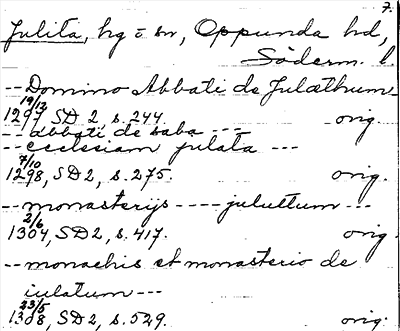 7.
Julita, hg o sn, Oppunda hd,
Söderm. l.
-- Domino Abbati de Julæthum --
19/12
1297 SD 2, s. 244. orig.
-- abbati de saba ---
-- ecclesiam julata ---
7/10
1298, SD 2, s. 275. orig.
-- monasterijs ---- juluttum ---
2/6
1304, SD 2, s. 417. orig.
-- monachis et monasterio de
iulatum ---
23/5
1308, SD 2, s. 529. orig.